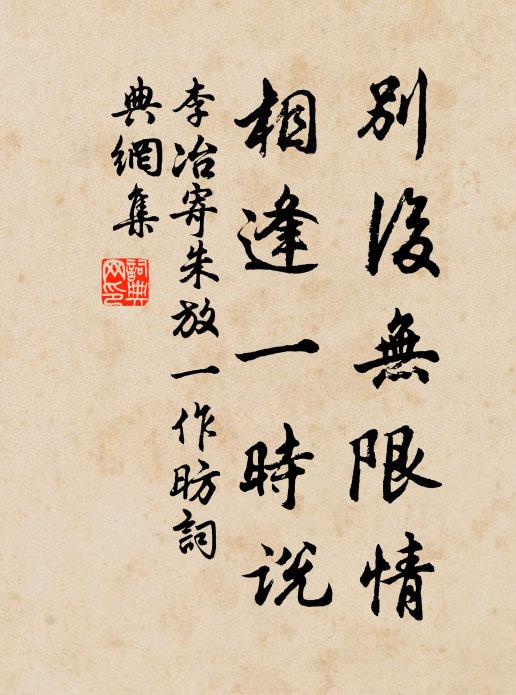 別後無限情
相逢一時說
李冶寄朱放一作昉詞
典網集
詞典
网印